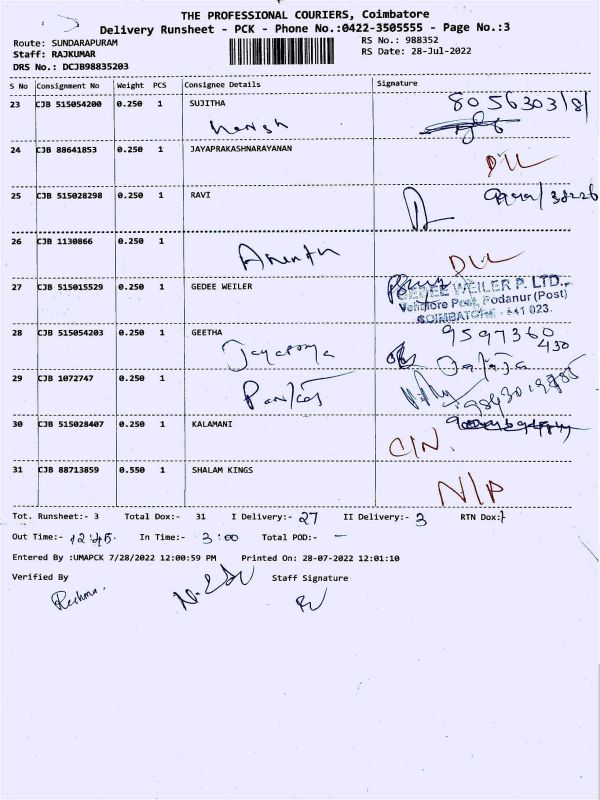 THE PROFESSIONAL COURIERS, Coimbatore
Delivery Runsheet - PCK - Phone No.:0422-3505555 - Page No.:3
Route: SUNDARAPURAM RS No.: 988352
Staff: RAJKUMAR RS Date: 28-Jul-2022
DRS No.: DCJB98835203
S No Consignment No Weight PCS Consignee Details Signature
23 CJB 515054200 0.250 1 SUJITHA 8056303181
Harish
24 CJB 88641853 0.250 1 JAYAPRAKASHNARAYANAN
D/L
25 CJB 515028298 0.250 1 RAVI
26 CJB 1130866 0.250 1
Ananth D/L
27 CJB 515015529 0.250 1 GEDEE WEILER GEDEE WEILER P. LTD.,
Vellalore Post, Podanur (Post)
COIMBATORE - 641 023.
28 CJB 515054203 0.250 1 GEETHA 9597360
430
Jayapriya
29 CJB 1072747 0.250 1
30 CJB 515028407 0.250 1 KALAMANI
C/N.
31 CJB 88713859 0.550 1 SHALAM KINGS
N/P
Tot. Runsheet:- 3 Total Dox:- 31 I Delivery:- 27 II Delivery:- 3 RTN Dox:- 1
Out Time:- 12:45 In Time:- 3:00 Total POD:- -
Entered By :UMAPCK 7/28/2022 12:00:59 PM Printed On: 28-07-2022 12:01:10
Verified By Staff Signature
Reshma